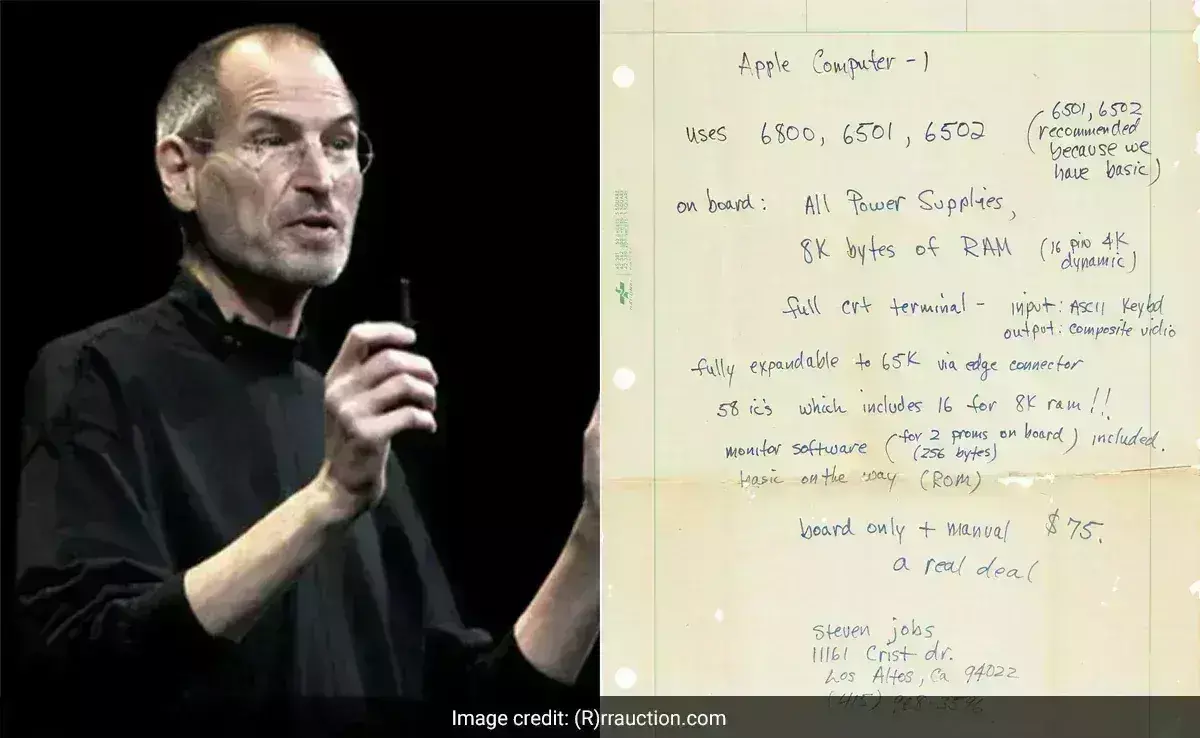 Apple Computer - 1
uses 6800, 6501, 6502
(6501, 6502
recommended
because we
have basic)
on board: All Power Supplies,
8K bytes of RAM (16 pin 4K
dynamic)
full crt terminal - input: ASCII Keybd
output: composite vidio
fully expandable to 65K via edge connector
58 ic's which includes 16 for 8K ram!!
monitor software (for 2 proms on board) included.
(256 bytes)
basic on the way (ROM)
board only + manual $75.
a real deal
steven jobs
11161 Crist dr.
Los Altos, Ca 94022
(415)
Image credit: (R)rrauction.com